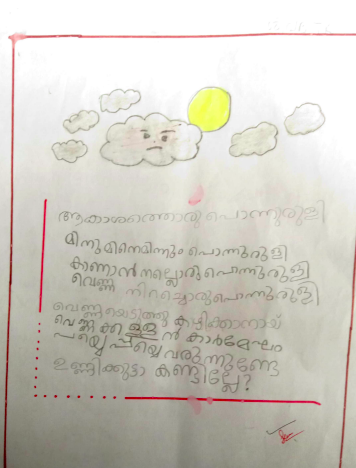 ആകാശത്തൊരു പൊന്നുരുളി
മിനുമിനെമിന്നും പൊന്നുരുളി
കാണാൻ നല്ലൊരു പൊന്നുരുളി
വെണ്ണ നിറച്ചൊരു പൊന്നുരുളി
വെണ്ണയെടുത്തു കഴിക്കാനായ്
വെണ്ണക്കള്ളൻ കാർമേഘം
പയ്യെപ്പയ്യെ വരുന്നുണ്ടേ
ഉണ്ണിക്കുട്ടാ കണ്ടില്ലേ?